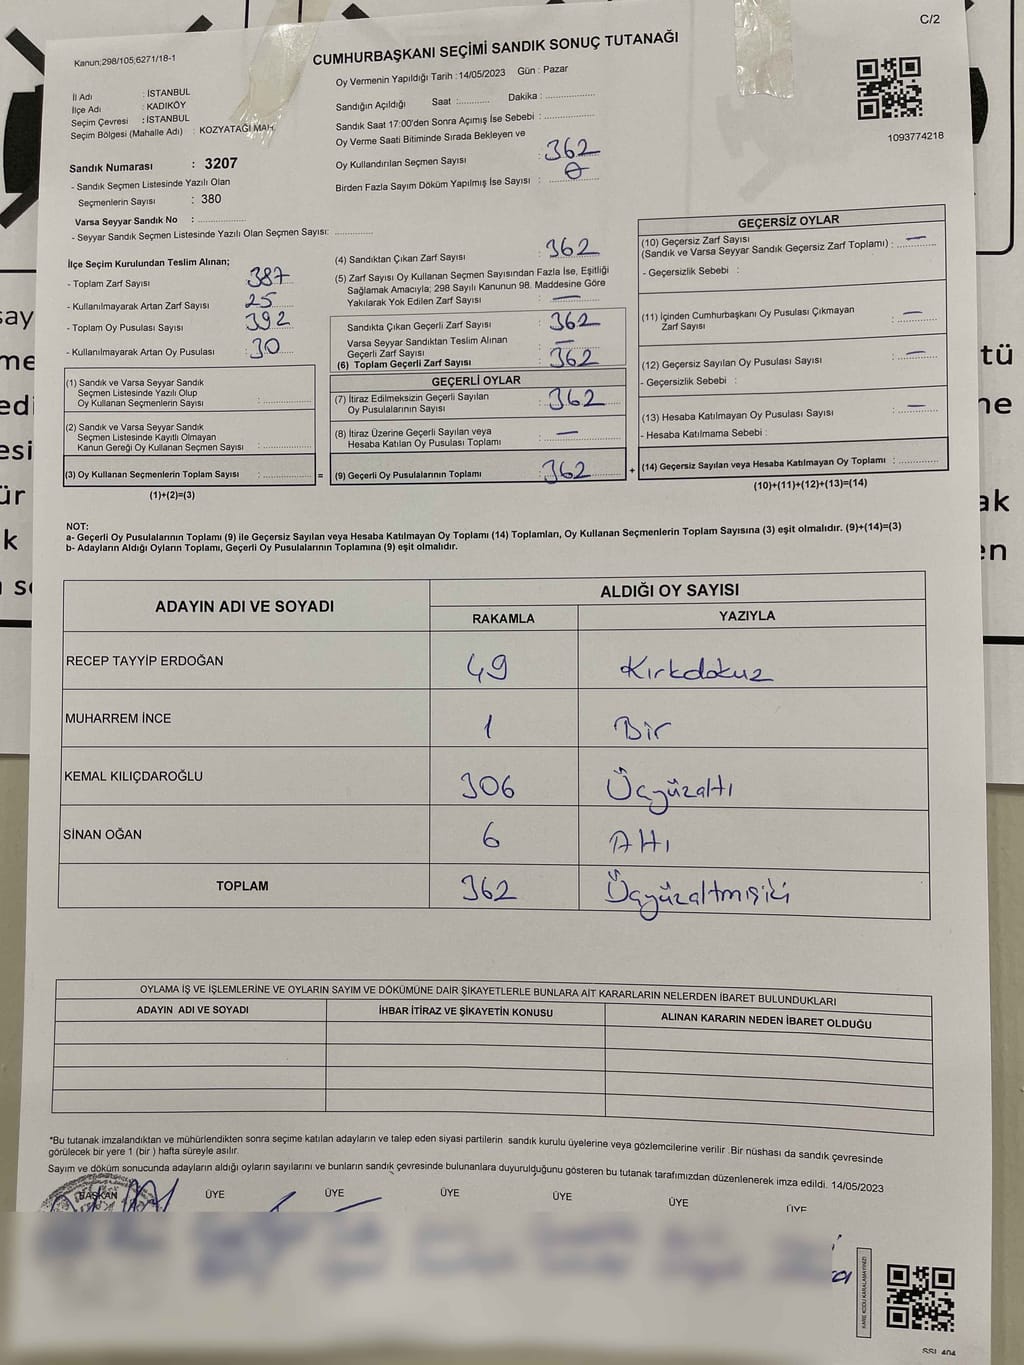 C/2
Kanun:298/105;6271/18-1
CUMHURBAŞKANI SEÇİMİ SANDIK SONUÇ TUTANAĞI
İl Adı : İSTANBUL
İlçe Adı : KADIKÖY
Seçim Çevresi : İSTANBUL
Seçim Bölgesi (Mahalle Adı) : KOZYATAĞI MAH.
Sandık Numarası : 3207
- Sandık Seçmen Listesinde Yazılı Olan
Seçmenlerin Sayısı : 380
Varsa Seyyar Sandık No : ..............
- Seyyar Sandık Seçmen Listesinde Yazılı Olan Seçmen Sayısı: ............
Oy Vermenin Yapıldığı Tarih : 14/05/2023 Gün : Pazar
Sandığın Açıldığı Saat :.......... Dakika : ................
Sandık Saat 17:00'den Sonra Açımış İse Sebebi : ................
Oy Verme Saati Bitiminde Sırada Bekleyen ve
Oy Kullandırılan Seçmen Sayısı : 362
Birden Fazla Sayım Döküm Yapılmış İse Sayısı : 0
1093774218
İlçe Seçim Kurulundan Teslim Alınan;
- Toplam Zarf Sayısı 387
- Kullanılmayarak Artan Zarf Sayısı 25
- Toplam Oy Pusulası Sayısı 392
- Kullanılmayarak Artan Oy Pusulası 30
(1) Sandık ve Varsa Seyyar Sandık
Seçmen Listesinde Yazılı Olup
Oy Kullanan Seçmenlerin Sayısı : ............
(2) Sandık ve Varsa Seyyar Sandık
Seçmen Listesinde Kayıtlı Olmayan
Kanun Gereği Oy Kullanan Seçmen Sayısı : ............
(3) Oy Kullanan Seçmenlerin Toplam Sayısı : ............ =
(1)+(2)=(3)
(4) Sandıktan Çıkan Zarf Sayısı : 362
(5) Zarf Sayısı Oy Kullanan Seçmen Sayısından Fazla İse, Eşitliği
Sağlamak Amacıyla; 298 Sayılı Kanunun 98. Maddesine Göre
Yakılarak Yok Edilen Zarf Sayısı : —
Sandıkta Çıkan Geçerli Zarf Sayısı : 362
Varsa Seyyar Sandıktan Teslim Alınan
Geçerli Zarf Sayısı : —
(6) Toplam Geçerli Zarf Sayısı : 362
GEÇERLİ OYLAR
(7) İtiraz Edilmeksizin Geçerli Sayılan
Oy Pusulalarının Sayısı : 362
(8) İtiraz Üzerine Geçerli Sayılan veya
Hesaba Katılan Oy Pusulası Toplamı : —
(9) Geçerli Oy Pusulalarının Toplamı : 362 +
GEÇERSİZ OYLAR
(10) Geçersiz Zarf Sayısı
(Sandık ve Varsa Seyyar Sandık Geçersiz Zarf Toplamı) : —
- Geçersizlik Sebebi :
(11) İçinden Cumhurbaşkanı Oy Pusulası Çıkmayan
Zarf Sayısı : —
(12) Geçersiz Sayılan Oy Pusulası Sayısı : —
- Geçersizlik Sebebi :
(13) Hesaba Katılmayan Oy Pusulası Sayısı : —
- Hesaba Katılmama Sebebi :
(14) Geçersiz Sayılan veya Hesaba Katılmayan Oy Toplamı : ............
(10)+(11)+(12)+(13)=(14)
NOT:
a- Geçerli Oy Pusulalarının Toplamı (9) ile Geçersiz Sayılan veya Hesaba Katılmayan Oy Toplamı (14) Toplamları, Oy Kullanan Seçmenlerin Toplam Sayısına (3) eşit olmalıdır. (9)+(14)=(3)
b- Adayların Aldığı Oyların Toplamı, Geçerli Oy Pusulalarının Toplamına (9) eşit olmalıdır.
ADAYIN ADI VE SOYADI ALDIĞI OY SAYISI
RAKAMLA YAZIYLA
RECEP TAYYİP ERDOĞAN 49 Kırkdokuz
MUHARREM İNCE 1 Bir
KEMAL KILIÇDAROĞLU 306 Üçyüzaltı
SİNAN OĞAN 6 Altı
TOPLAM 362 Üçyüzaltmışiki
OYLAMA İŞ VE İŞLEMLERİNE VE OYLARIN SAYIM VE DÖKÜMÜNE DAİR ŞİKAYETLERLE BUNLARA AİT KARARLARIN NELERDEN İBARET BULUNDUKLARI
ADAYIN ADI VE SOYADI İHBAR İTİRAZ VE ŞİKAYETİN KONUSU ALINAN KARARIN NEDEN İBARET OLDUĞU
*Bu tutanak imzalandıktan ve mühürlendikten sonra seçime katılan adayların ve talep eden siyasi partilerin sandık kurulu üyelerine veya gözlemcilerine verilir .Bir nüshası da sandık çevresinde
görülecek bir yere 1 (bir ) hafta süreyle asılır.
Sayım ve döküm sonucunda adayların aldığı oyların sayılarını ve bunların sandık çevresinde bulunanlara duyurulduğunu gösteren bu tutanak tarafımızdan düzenlenerek imza edildi. 14/05/2023
BAŞKAN ÜYE ÜYE ÜYE ÜYE ÜYE ÜYE
KARE KODU KARALAMAYINIZ!